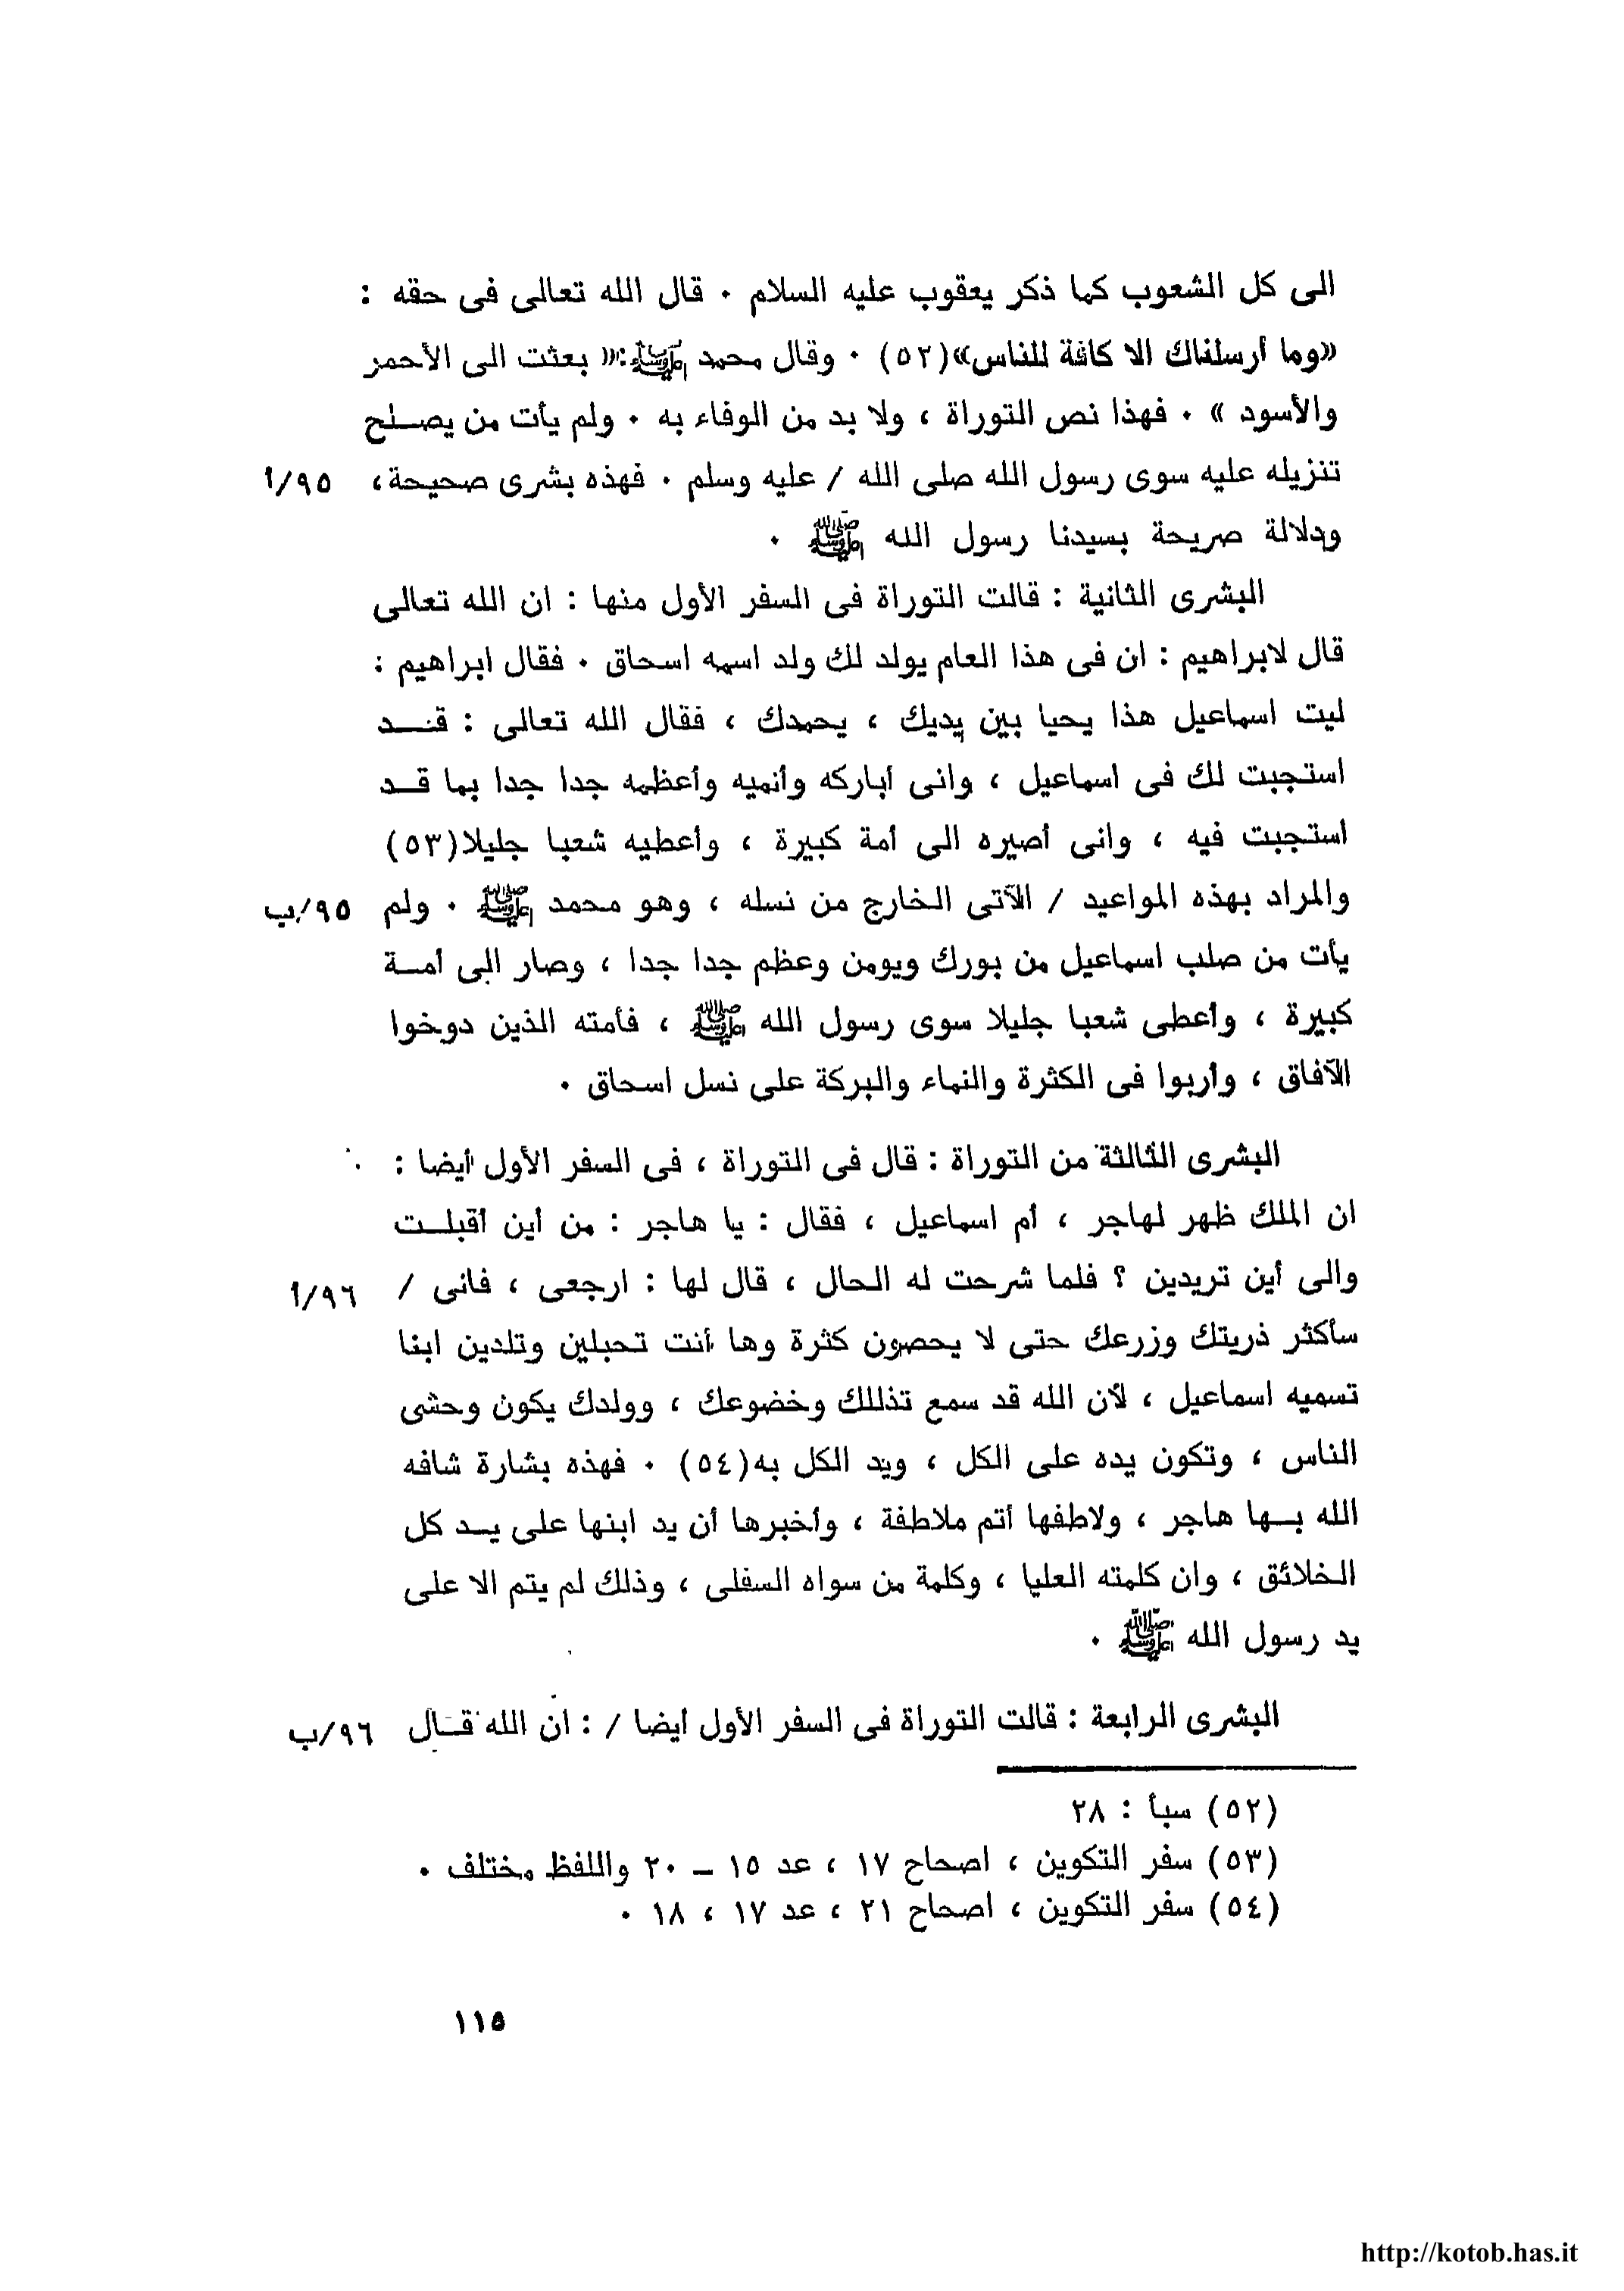 الى كل الشعوب كما ذكر يعقوب عليه السلام ٠ قال الله تعالى فى حقه :
«وما أرسلناك الا كافة للناس»(٥٢) ٠ وقال محمد ﷺ:« بعثت الى الأحمر
والأسود » ٠ فهذا نص التوراة ، ولا بد من الوفاء به ٠ ولم يأت من يصلح
تنزيله عليه سوى رسول الله صلى الله / عليه وسلم ٠ فهذه بشرى صحيحة، ٩٥/أ
ودلالة صريحة بسيدنا رسول الله ﷺ ٠
البشرى الثانية : قالت التوراة فى السفر الأول منها : ان الله تعالى
قال لابراهيم : ان فى هذا العام يولد لك ولد اسمه اسحاق ٠ فقال ابراهيم :
ليت اسماعيل هذا يحيا بين يديك ، يحمدك ، فقال الله تعالى : قد
استجبت لك فى اسماعيل ، وانى أباركه وأنميه وأعظمه جدا جدا بما قد
استجبت فيه ، وانى أصيره الى أمة كبيرة ، وأعطيه شعبا جليلا(٥٣)
والمراد بهذه المواعيد / الآتى الخارج من نسله ، وهو محمد ﷺ ٠ ولم ٩٥/ب
يأت من صلب اسماعيل من بورك ويومن وعظم جدا جدا ، وصار الى أمة
كبيرة ، وأعطى شعبا جليلا سوى رسول الله ﷺ ، فأمته الذين دوخوا
الآفاق ، وأربوا فى الكثرة والنماء والبركة على نسل اسحاق ٠
البشرى الثالثة من التوراة : قال فى التوراة ، فى السفر الأول أيضا :
ان الملك ظهر لهاجر ، أم اسماعيل ، فقال : يا هاجر : من أين أقبلت
والى أين تريدين ؟ فلما شرحت له الحال ، قال لها : ارجعى ، فانى / ٩٦/أ
سأكثر ذريتك وزرعك حتى لا يحصون كثرة وها أنت تحبلين وتلدين ابنا
تسميه اسماعيل ، لأن الله قد سمع تذللك وخضوعك ، وولدك يكون وحشى
الناس ، وتكون يده على الكل ، ويد الكل به(٥٤) ٠ فهذه بشارة شافه
الله بها هاجر ، ولاطفها أتم ملاطفة ، وأخبرها أن يد ابنها على يد كل
الخلائق ، وان كلمته العليا ، وكلمة من سواه السفلى ، وذلك لم يتم الا على
يد رسول الله ﷺ ٠
البشرى الرابعة : قالت التوراة فى السفر الأول أيضا / : ان الله قال ٩٦/ب
(٥٢) سبأ : ٢٨
(٥٣) سفر التكوين ، اصحاح ١٧ ، عد ١٥ – ٢٠ واللفظ مختلف ٠
(٥٤) سفر التكوين ، اصحاح ٢١ ، عد ١٧ ، ١٨ ٠
١١٥
http://kotob.has.it